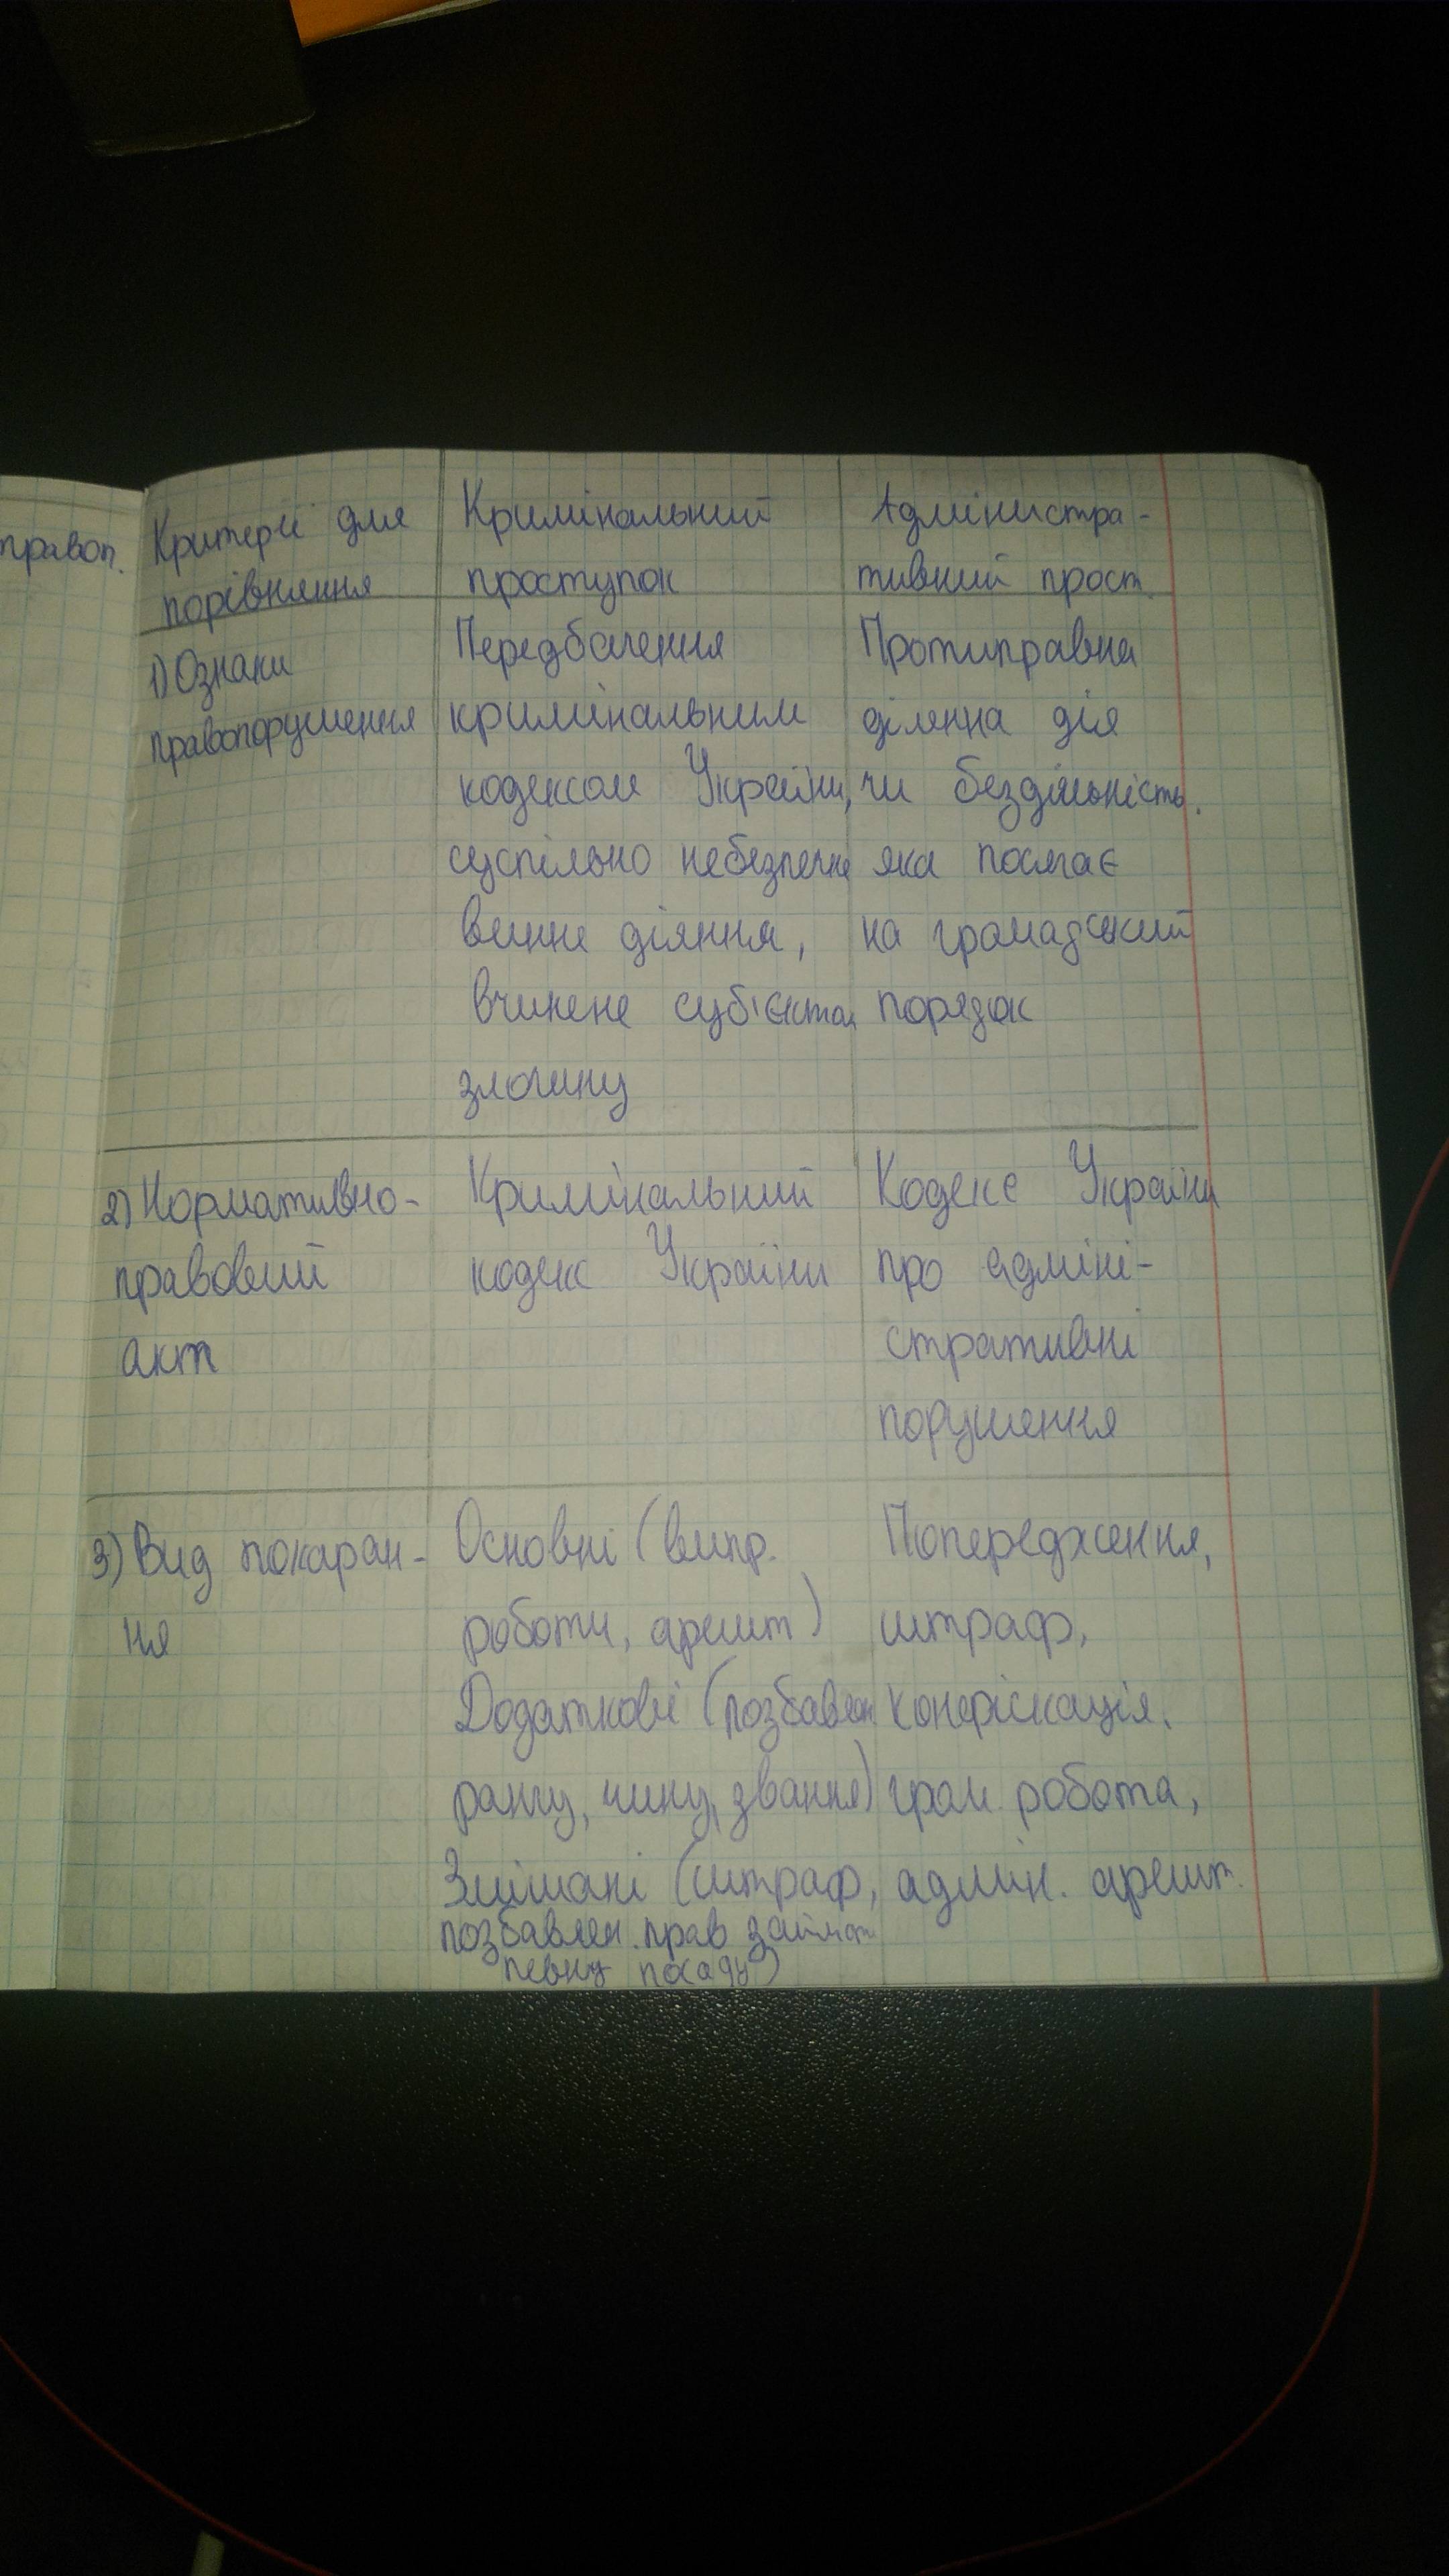 правоп.
Критерії для
порівняння
Кримінальний
проступок
Адміністра-
тивний прост.
1) Ознаки
правопорушення
Передбачення
кримінальним
кодексом України,
суспільно небезпечне
винне діяння,
вчинене суб'єктом
злочину
Протиправна
діянна дія
чи бездіяльність.
яка посягає
на громадський
порядок
2) Нормативно-
правовий
акт
Кримінальний
кодекс України
Кодекс України
про адміні-
стративні
порушення
3) Вид покаран-
ня
Основні (випр.
роботи, арешт)
Додаткові (позбавлен
рангу, чину, звання)
Змішані (штраф,
позбавлен. прав займат
певну посаду)
Попередження,
штраф,
конфіскація,
гром. робота,
адмін. арешт.